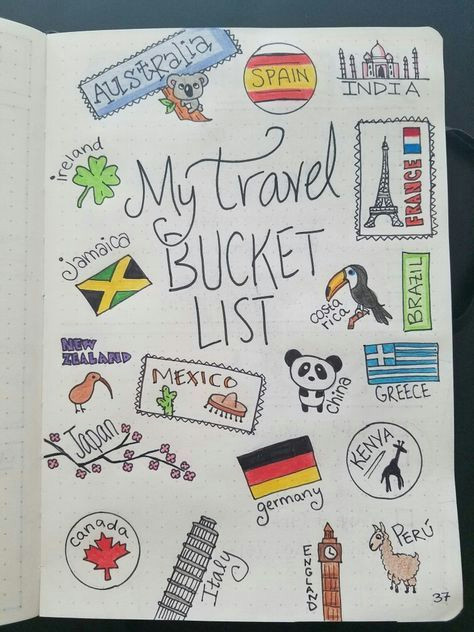 AUStralia
SPAIN
INDIA
ireland
FRANCE
My Travel
BUCKET
LIST
jamaica
costa
rica
BRAZIL
NEW
ZEALAND
MEXICO
China
GREECE
Japan
germany
KENYA
Canada
Italy
ENGLAND
PERÚ
37